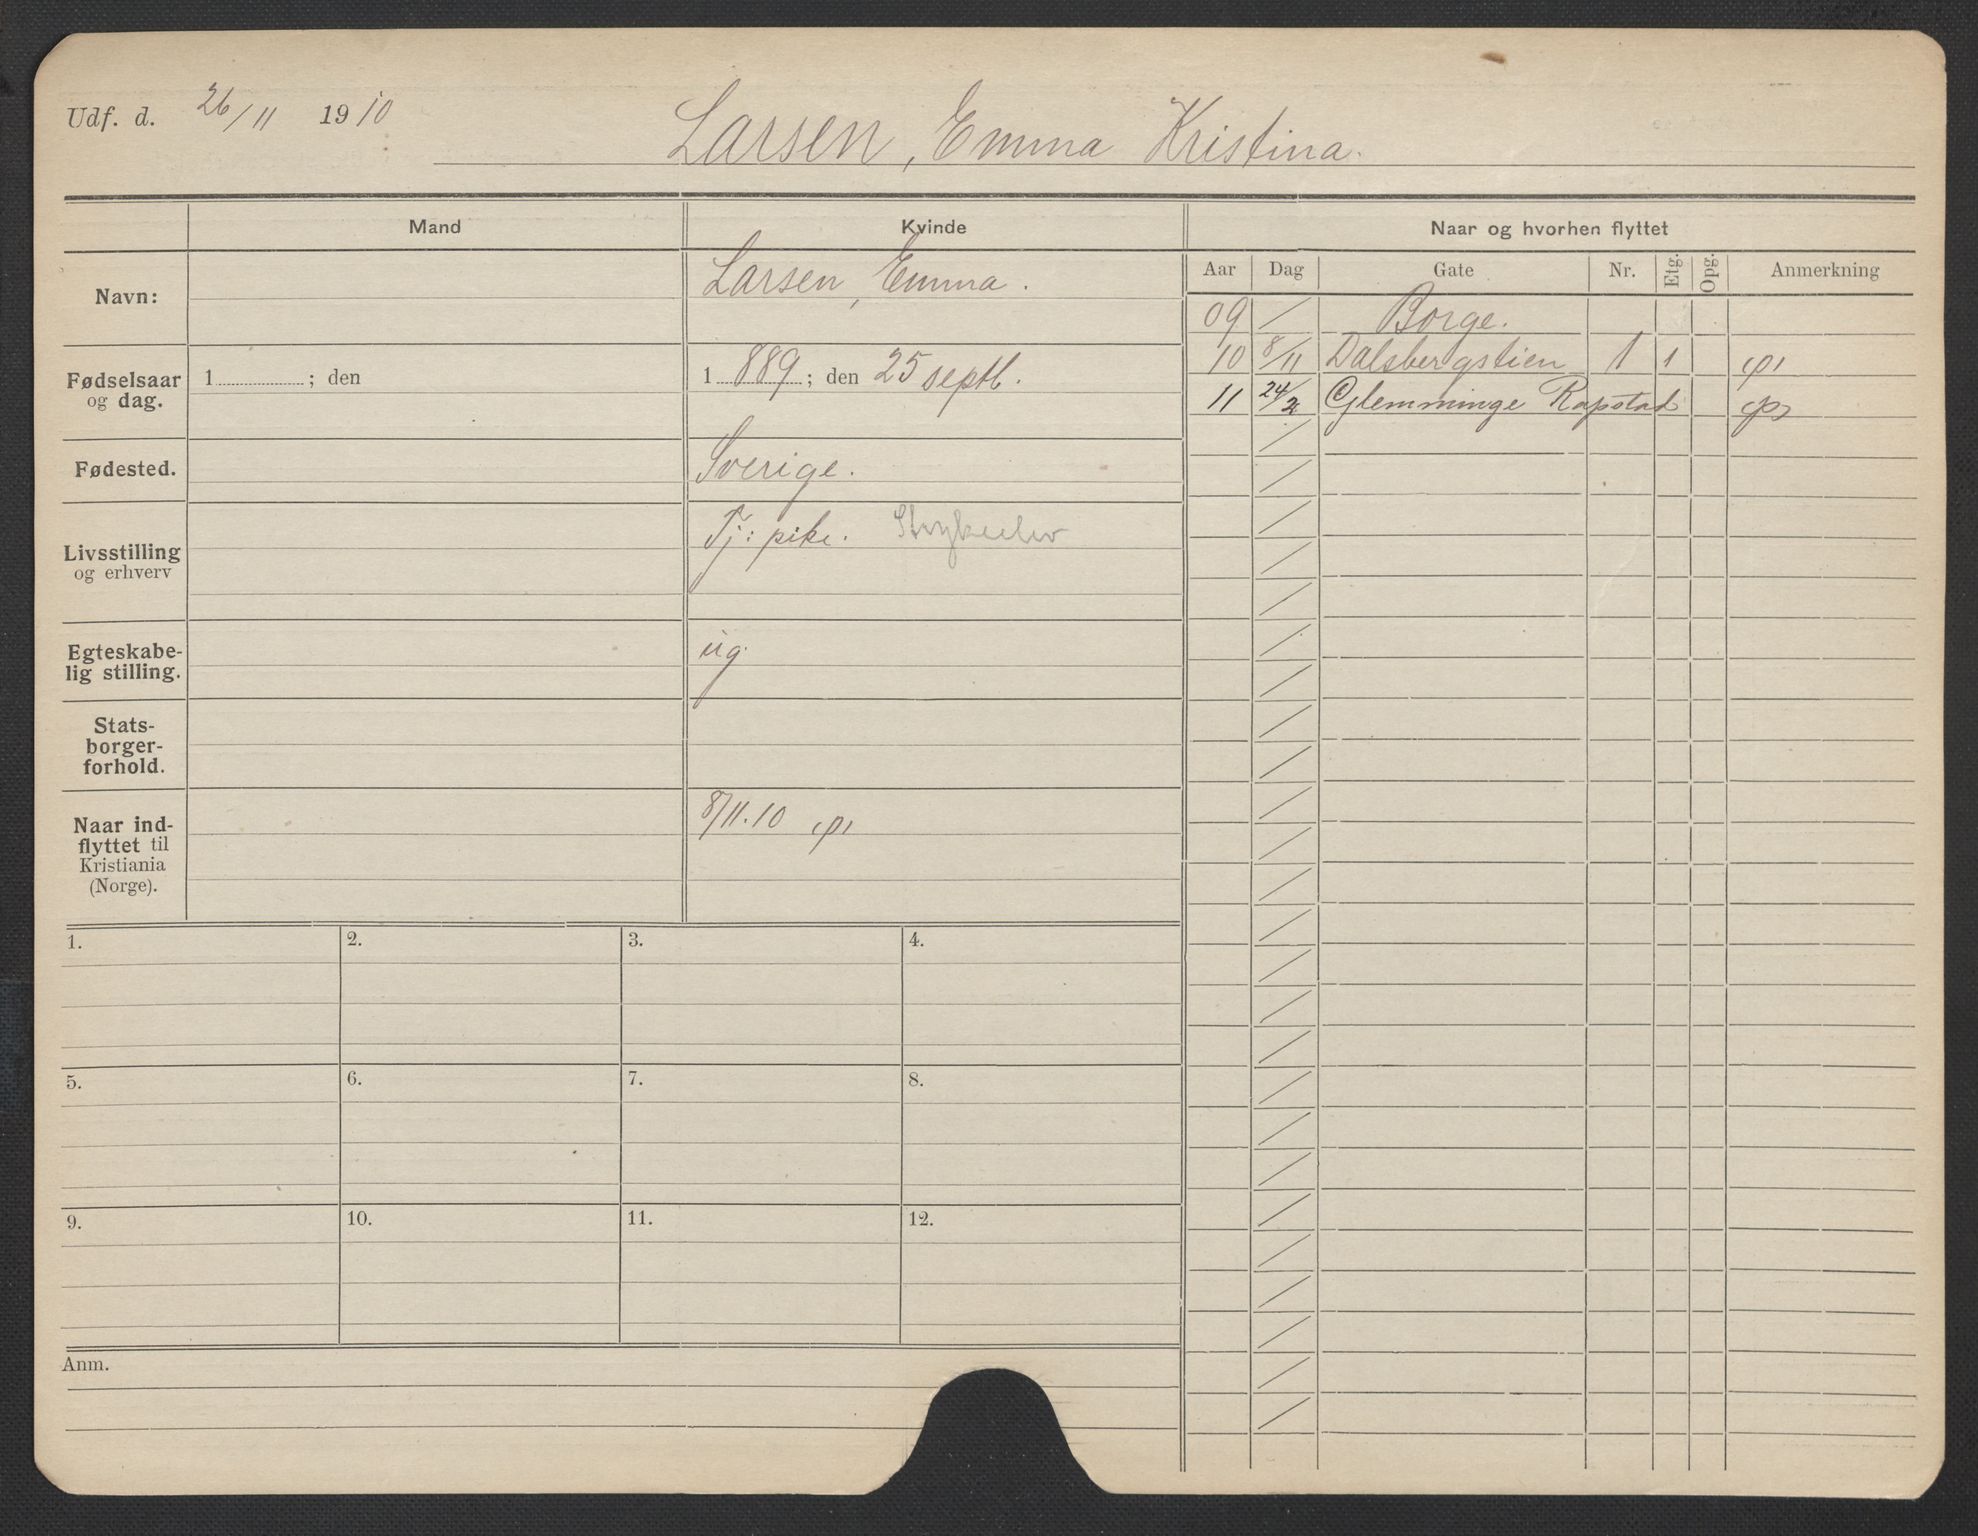 Udf. d. 26/11 1910
Larsen, Emma Kristina.
Mand
Kvinde
Naar og hvorhen flyttet
Aar Dag Gate Nr. Etg. Opg. Anmerkning
Navn:
Larsen, Emma.
Fødselsaar
og dag.
1 ; den
1 889 ; den 25 septb.
Fødested.
Sverige.
Livsstilling
og erhverv
Tj: pike.
Egteskabe-
lig stilling.
ug.
Stats-
borger-
forhold.
Naar ind-
flyttet til
Kristiania
(Norge).
8/11.10
09 / Borge.
10 8/11 Dalsbergstien 1 1
11 24/2 Glemminge Rapstad
1. 2. 3. 4.
5. 6. 7. 8.
9. 10. 11. 12.
Anm.